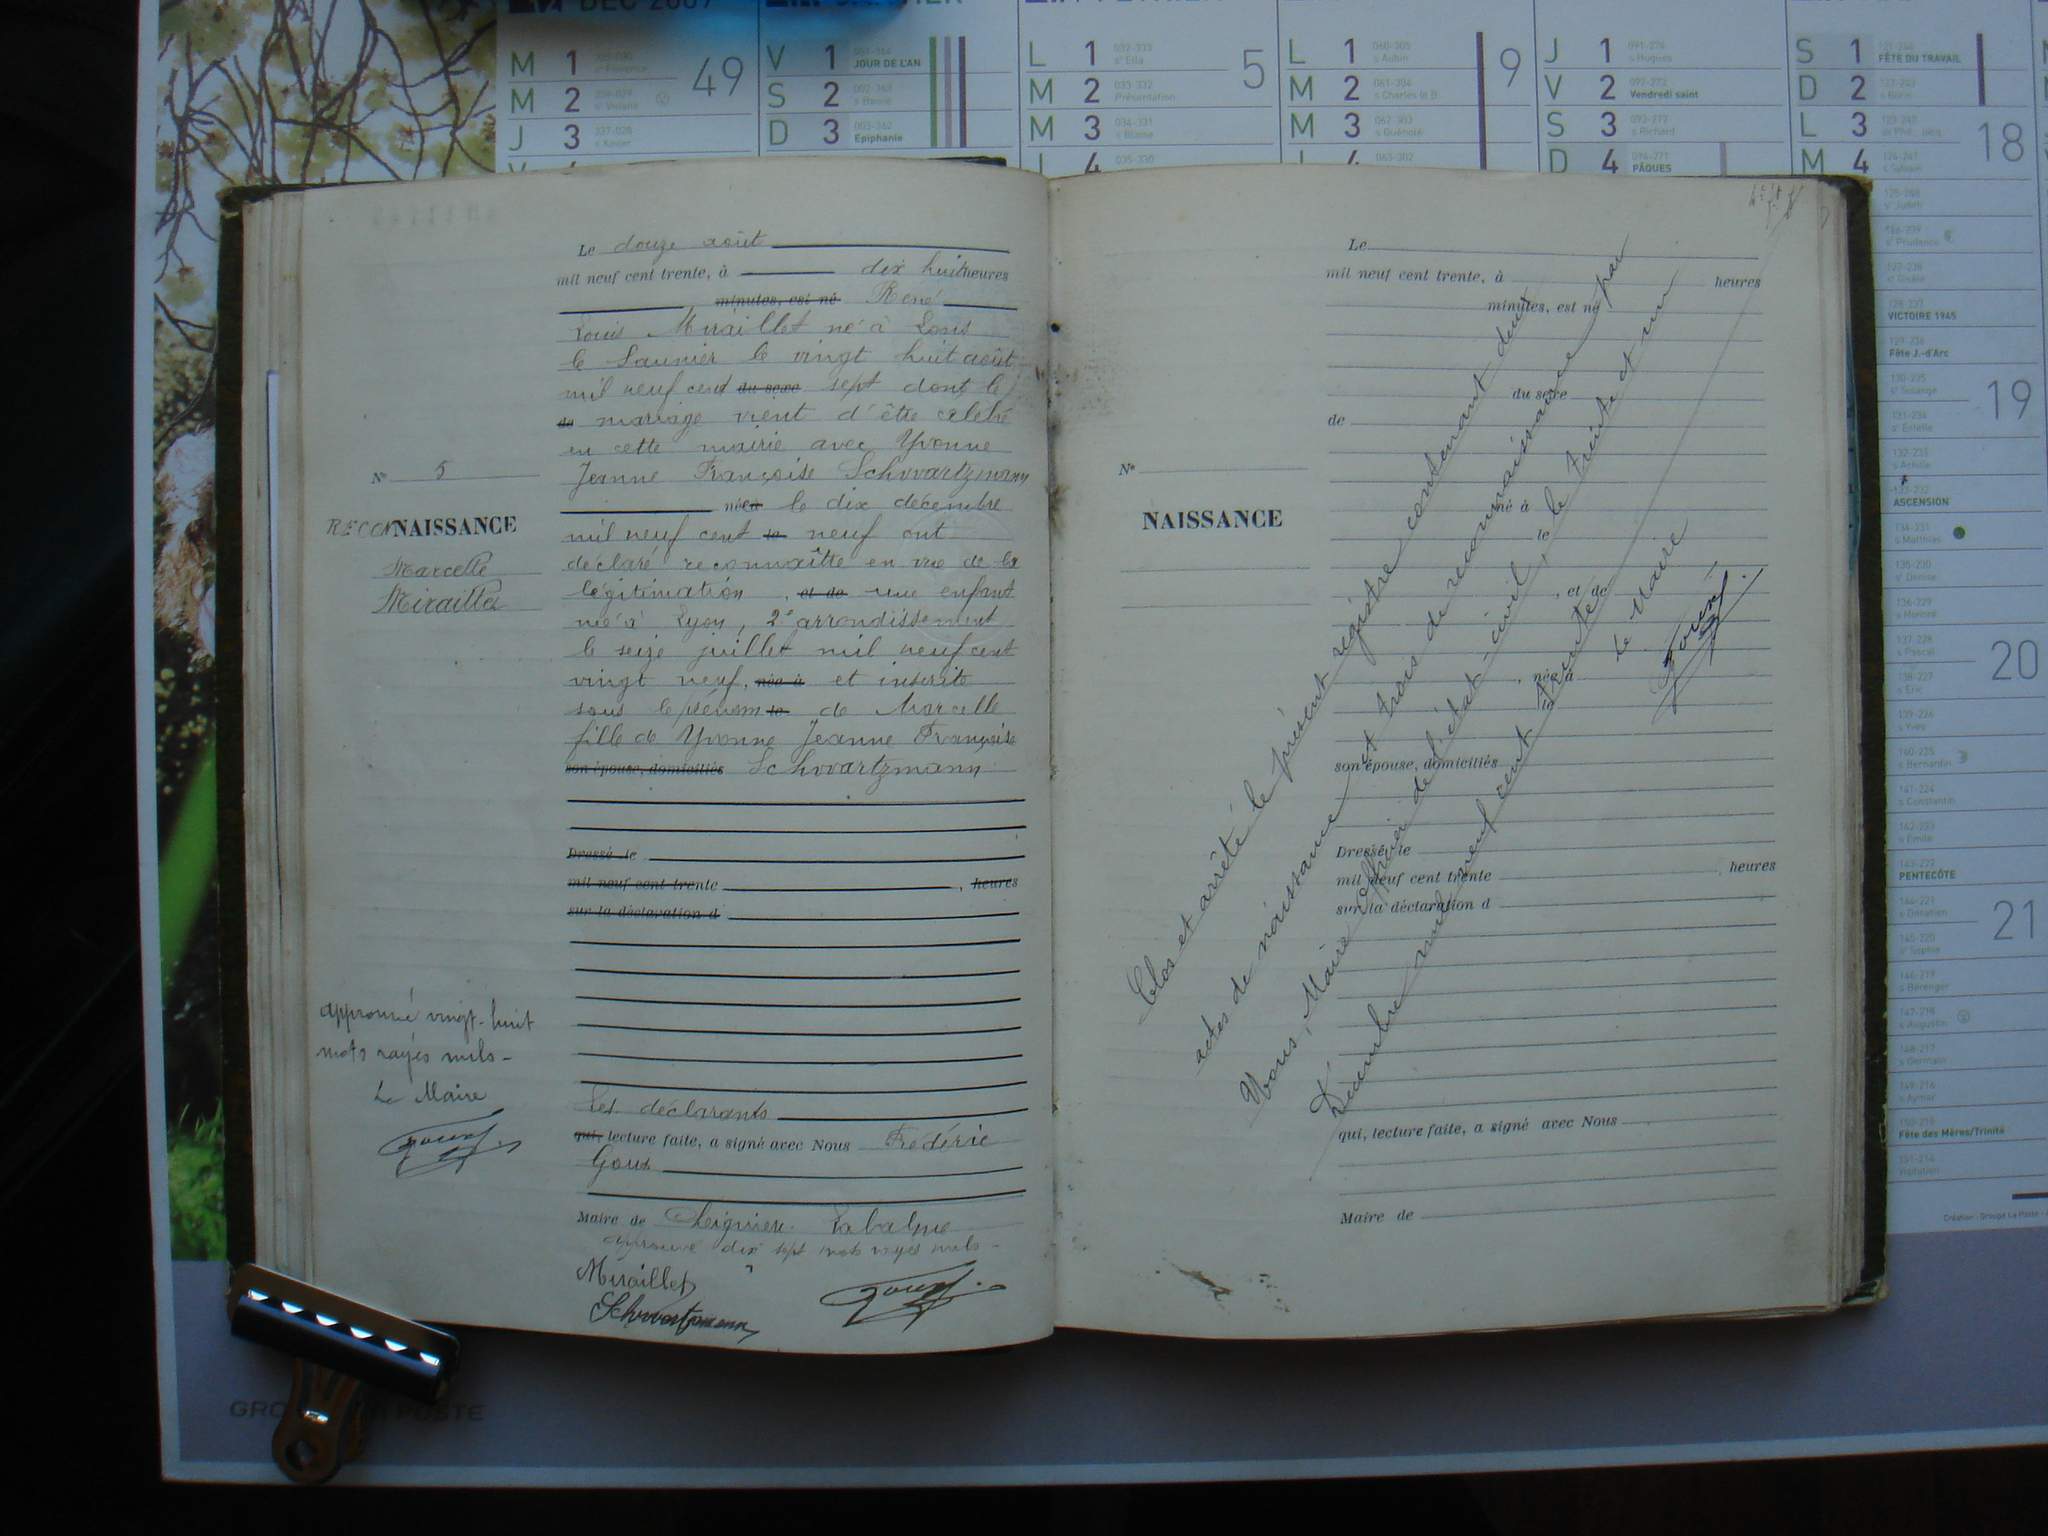 49
M 1
M 2
J 3
V 1 JOUR DE L'AN
S 2
D 3 Epiphanie
5
L 1
M 2 Présentation
M 3
L 1
M 2
M 3
9
J 1
V 2 Vendredi saint
S 3
D 4 PÂQUES
S 1 FÊTE DU TRAVAIL
D 2
L 3
M 4
18
VICTOIRE 1945
Fête J.-d'Arc
19
ASCENSION
20
PENTECÔTE
21
Fête des Mères/Trinité
Le douze août
mil neuf cent trente, à dix huit heures
minutes, est né René
Louis Miraillet né à Lons
le Saunier le vingt huit août
mil neuf cent du sexe sept dont le
de mariage vient d'être célébré
en cette mairie avec Yvonne
Jeanne Françoise Schwartzmann
née à le dix décembre
mil neuf cent le neuf ont
déclaré reconnaître en vue de la
légitimation, et de une enfant
née à Lyon, 2e arrondissement
le seize juillet mil neuf cent
vingt neuf, née à et inscrite
sous le prénom le de Marcelle
fille de Yvonne Jeanne Françoise
son épouse, domiciliés Schwartzmann
Dressé le
mil neuf cent trente , heures
sur la déclaration d
Les déclarants
qui, lecture faite, a signé avec Nous Frédéric
Maire de
approuvé dix sept mots rayés nuls -
Miraillet
Schwartzmann
N° 5
RECONNAISSANCE
Marcelle
Miraillet
Approuvé vingt-huit
mots rayés nuls -
Le Maire
Le
mil neuf cent trente, à heures
minutes, est né
du sexe
de
N°
NAISSANCE
né à
le
, et de
, née à
son épouse, domiciliés
Dressé le
mil neuf cent trente , heures
sur la déclaration d
qui, lecture faite, a signé avec Nous
Maire de
Clos et arrêté le présent registre contenant deux
actes de naissance et trois de reconnaissance par
Nous, Maire officier de l'état-civil, le trente et un
Décembre mil neuf cent trente
Le Maire